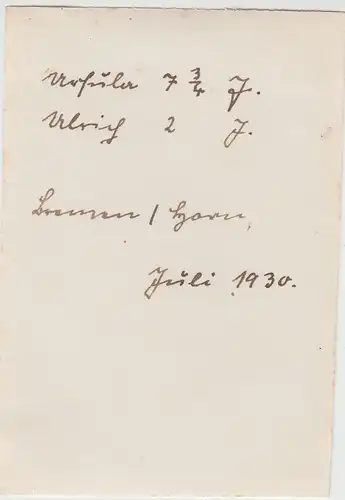 Ursula 7 3/4 J.
Ulrich 2 J.
Bremen / Horn,
Juli 1930.